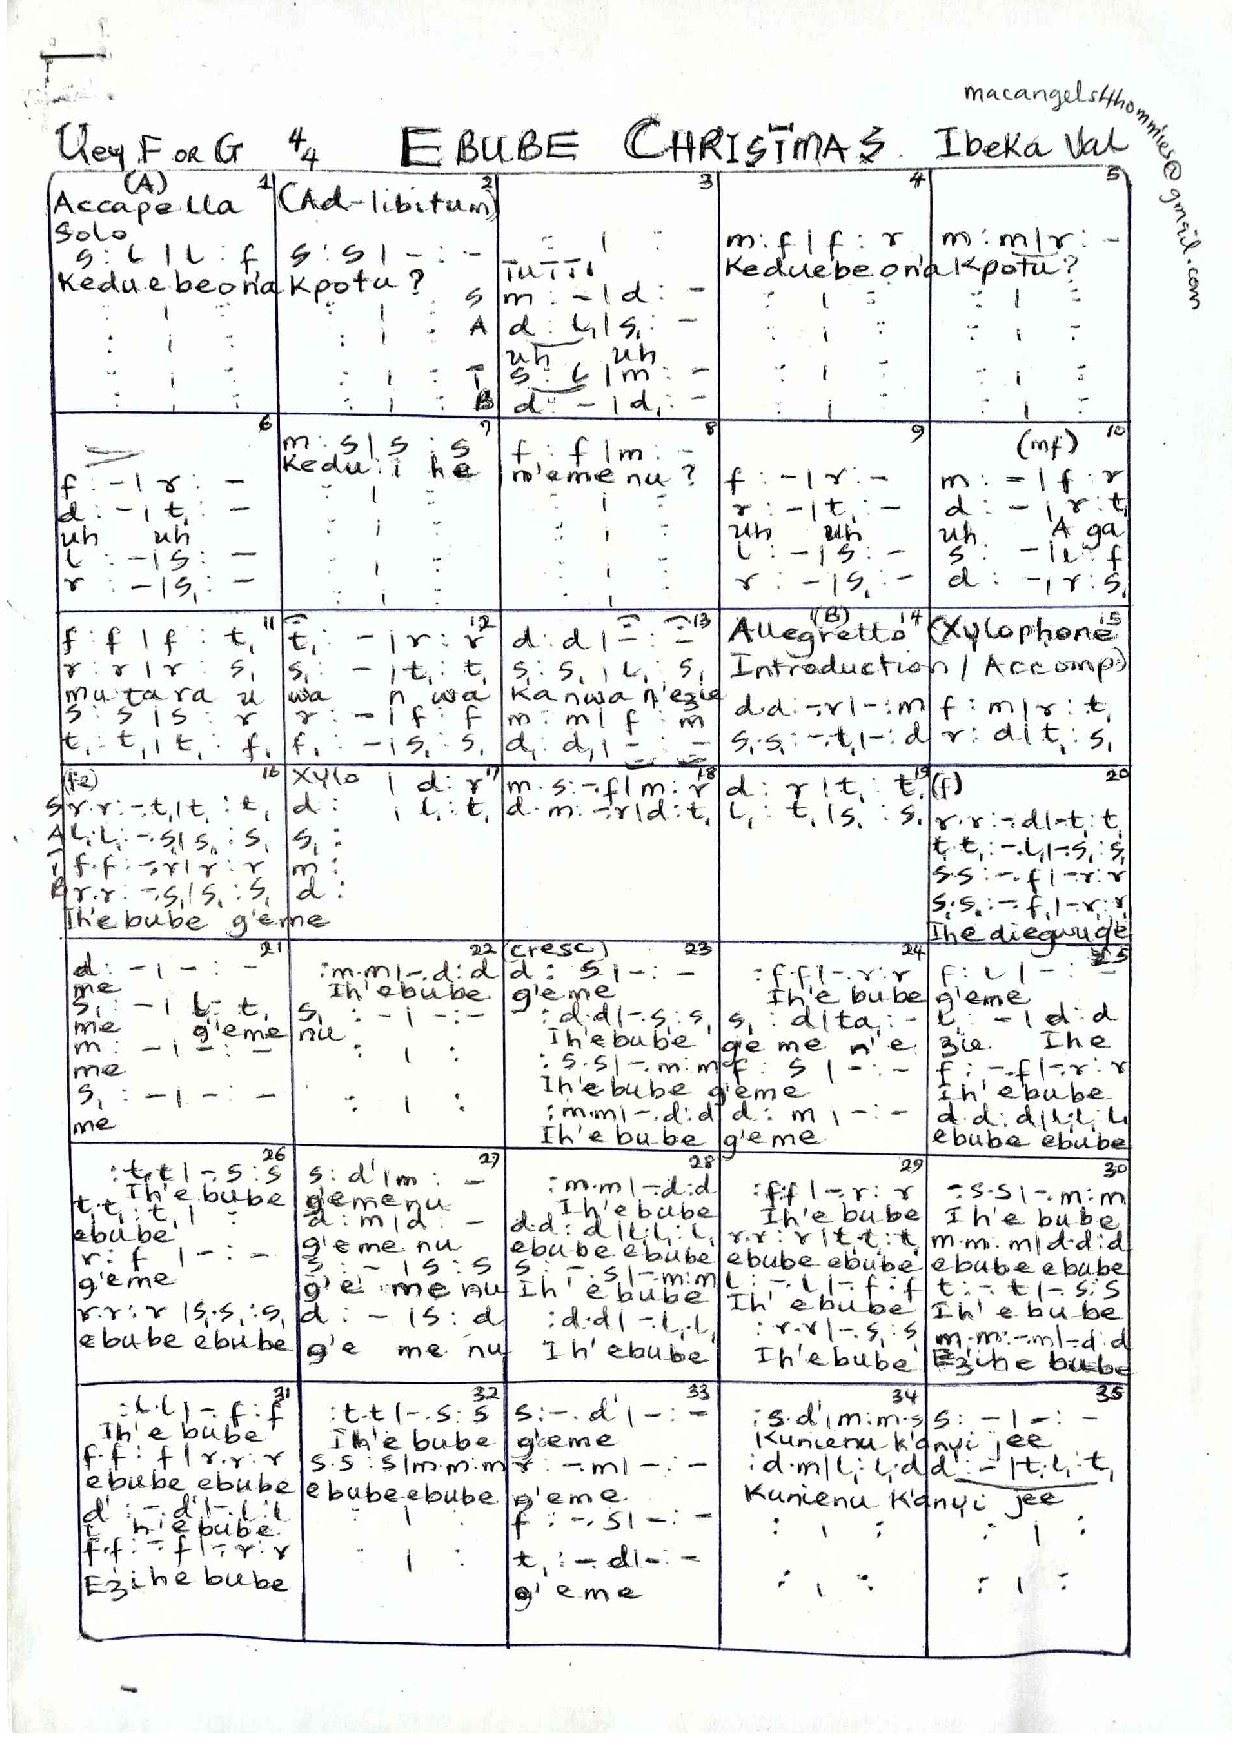 macangels4hommies@gmail.com
Key F or G 4/4 EBUBE CHRISTMAS. Ibeka Val
(A) 1
Accapella
Solo
s : l | l : f
Keduebeon'a
2
(Ad-libitum)
s : s | - : -
kpotu?
3
TUTTI
S m : - | d : -
A d : l, | s, : -
uh uh
T s : l | m : -
B d : - | d, : -
4
m : f | f : r
Keduebeon'a
5
m : m | r : -
Kpotu?
6
f : - | r : -
d : - | t, : -
uh uh
l : - | s : -
r : - | s, : -
7
m : s | s : s
Kedu i he
8
f : f | m : -
m'eme nu?
9
f : - | r : -
r : - | t, : -
uh uh
l : - | s : -
r : - | s, : -
(mf) 10
m : - | f : r
d : - | r : t,
uh A ga
s : - | l : f
d : - | r : s,
11
f : f | f : t,
r : r | r : s,
mu ta ra u
s : s | s : r
t, : t, | t, : f,
12
t, : - | r : r
s, : - | t, : t,
wa n wa
r : - | f : f
f, : - | s, : s,
13
d : d | - : -
s, : s, | l, : s,
ka nwa n'ezie
m : m | f : m
d, : d, | - : -
(B) 14
Allegretto
Introduction /
d.d : -.r | - : m
s,.s, : -.t, | - : d
15
(Xylophone
Accomp)
f : m | r : t,
r : d | t, : s,
16
S r.r : -.t, | t, : t,
A l,.l, : -.s, | s, : s,
T f.f : -.r | r : r
B r.r : -.s, | s, : s,
Ih'e bube g'eme
17
Xylo | d : r
d : | l, : t,
s, :
m :
d :
18
m.s : -.f | m : r
d.m : -.r | d : t,
19
d : r | t, : t,
l, : t, | s, : s,
(f) 20
r.r : -.d | -.t, : t,
t,.t, : -.l, | -.s, : s,
s.s : -.f | -.r : r
s,.s, : -.f, | -.r, : r,
Ihe dieguruge
21
d : - | - : -
me
s, : - | l, : t,
me g'eme
m : - | - : -
me
s, : - | - : -
me
22
: m.m | -.d : d
Ih'e bube
s, : - | - : -
nu
(cresc) 23
d : s | - : -
g'eme
: d.d | -.s, : s,
Ih'e bube
: s.s | -.m : m
Ih'e bube
: m.m | -.d : d
Ih'e bube
24
: f.f | -.r : r
Ih'e bube
s, : d | ta, : -
ge me n'e
f : s | - : -
g'eme
d : m | - : -
g'eme
25
f : l | - : -
g'eme
l, : - | d : d
zie. Ihe
f : -.f | -.r : r
Ih'e bube
d.d : d | l,.l, : l,
ebube ebube
26
: t.t | -.s : s
Ih'e bube
t,.t, : t, | :
ebube
r : f | - : -
g'eme
r.r : r | s,.s, : s,
ebube ebube
27
s : d' | m : -
g'emenu
d : m | d : -
g'e me nu
s : - | s : s
g'e me nu
d : - | s : d
g'e me nu
28
: m.m | -.d : d
Ih'e bube
d.d : d | l,.l, : l,
ebube ebube
s : -.s | -.m : m
Ih'e bube
: d.d | -.l, : l,
Ih'e bube
29
: f.f | -.r : r
Ih'e bube
r.r : r | t,.t, : t,
ebube ebube
l : -.l | -.f : f
Ih'e bube
: r.r | -.s, : s,
Ih'e bube
30
: s.s | -.m : m
Ih'e bube
m.m : m | d.d : d
ebube ebube
t : -.t | -.s : s
Ih'e bube
m.m : -.m | -.d : d
Ezihe bube
31
: l.l | -.f : f
Ih'e bube
f.f : f | r.r : r
ebube ebube
d' : -.d' | -.l : l
I h'e bube
f.f : -.f | -.r : r
Ezihe bube
32
: t.t | -.s : s
Ih'e bube
s.s : s | m.m : m
ebube ebube
33
s : -.d' | - : -
g'eme
r : -.m | - : -
g'eme
f : -.s | - : -
t, : -.d | - : -
g'eme
34
: s.d' | m : m.s
Kunienu k'a
: d.m | l, : l,.d
Kunienu K'a
35
s : - | - : -
nyi jee
d' : - | t, l, : t,
nyi jee